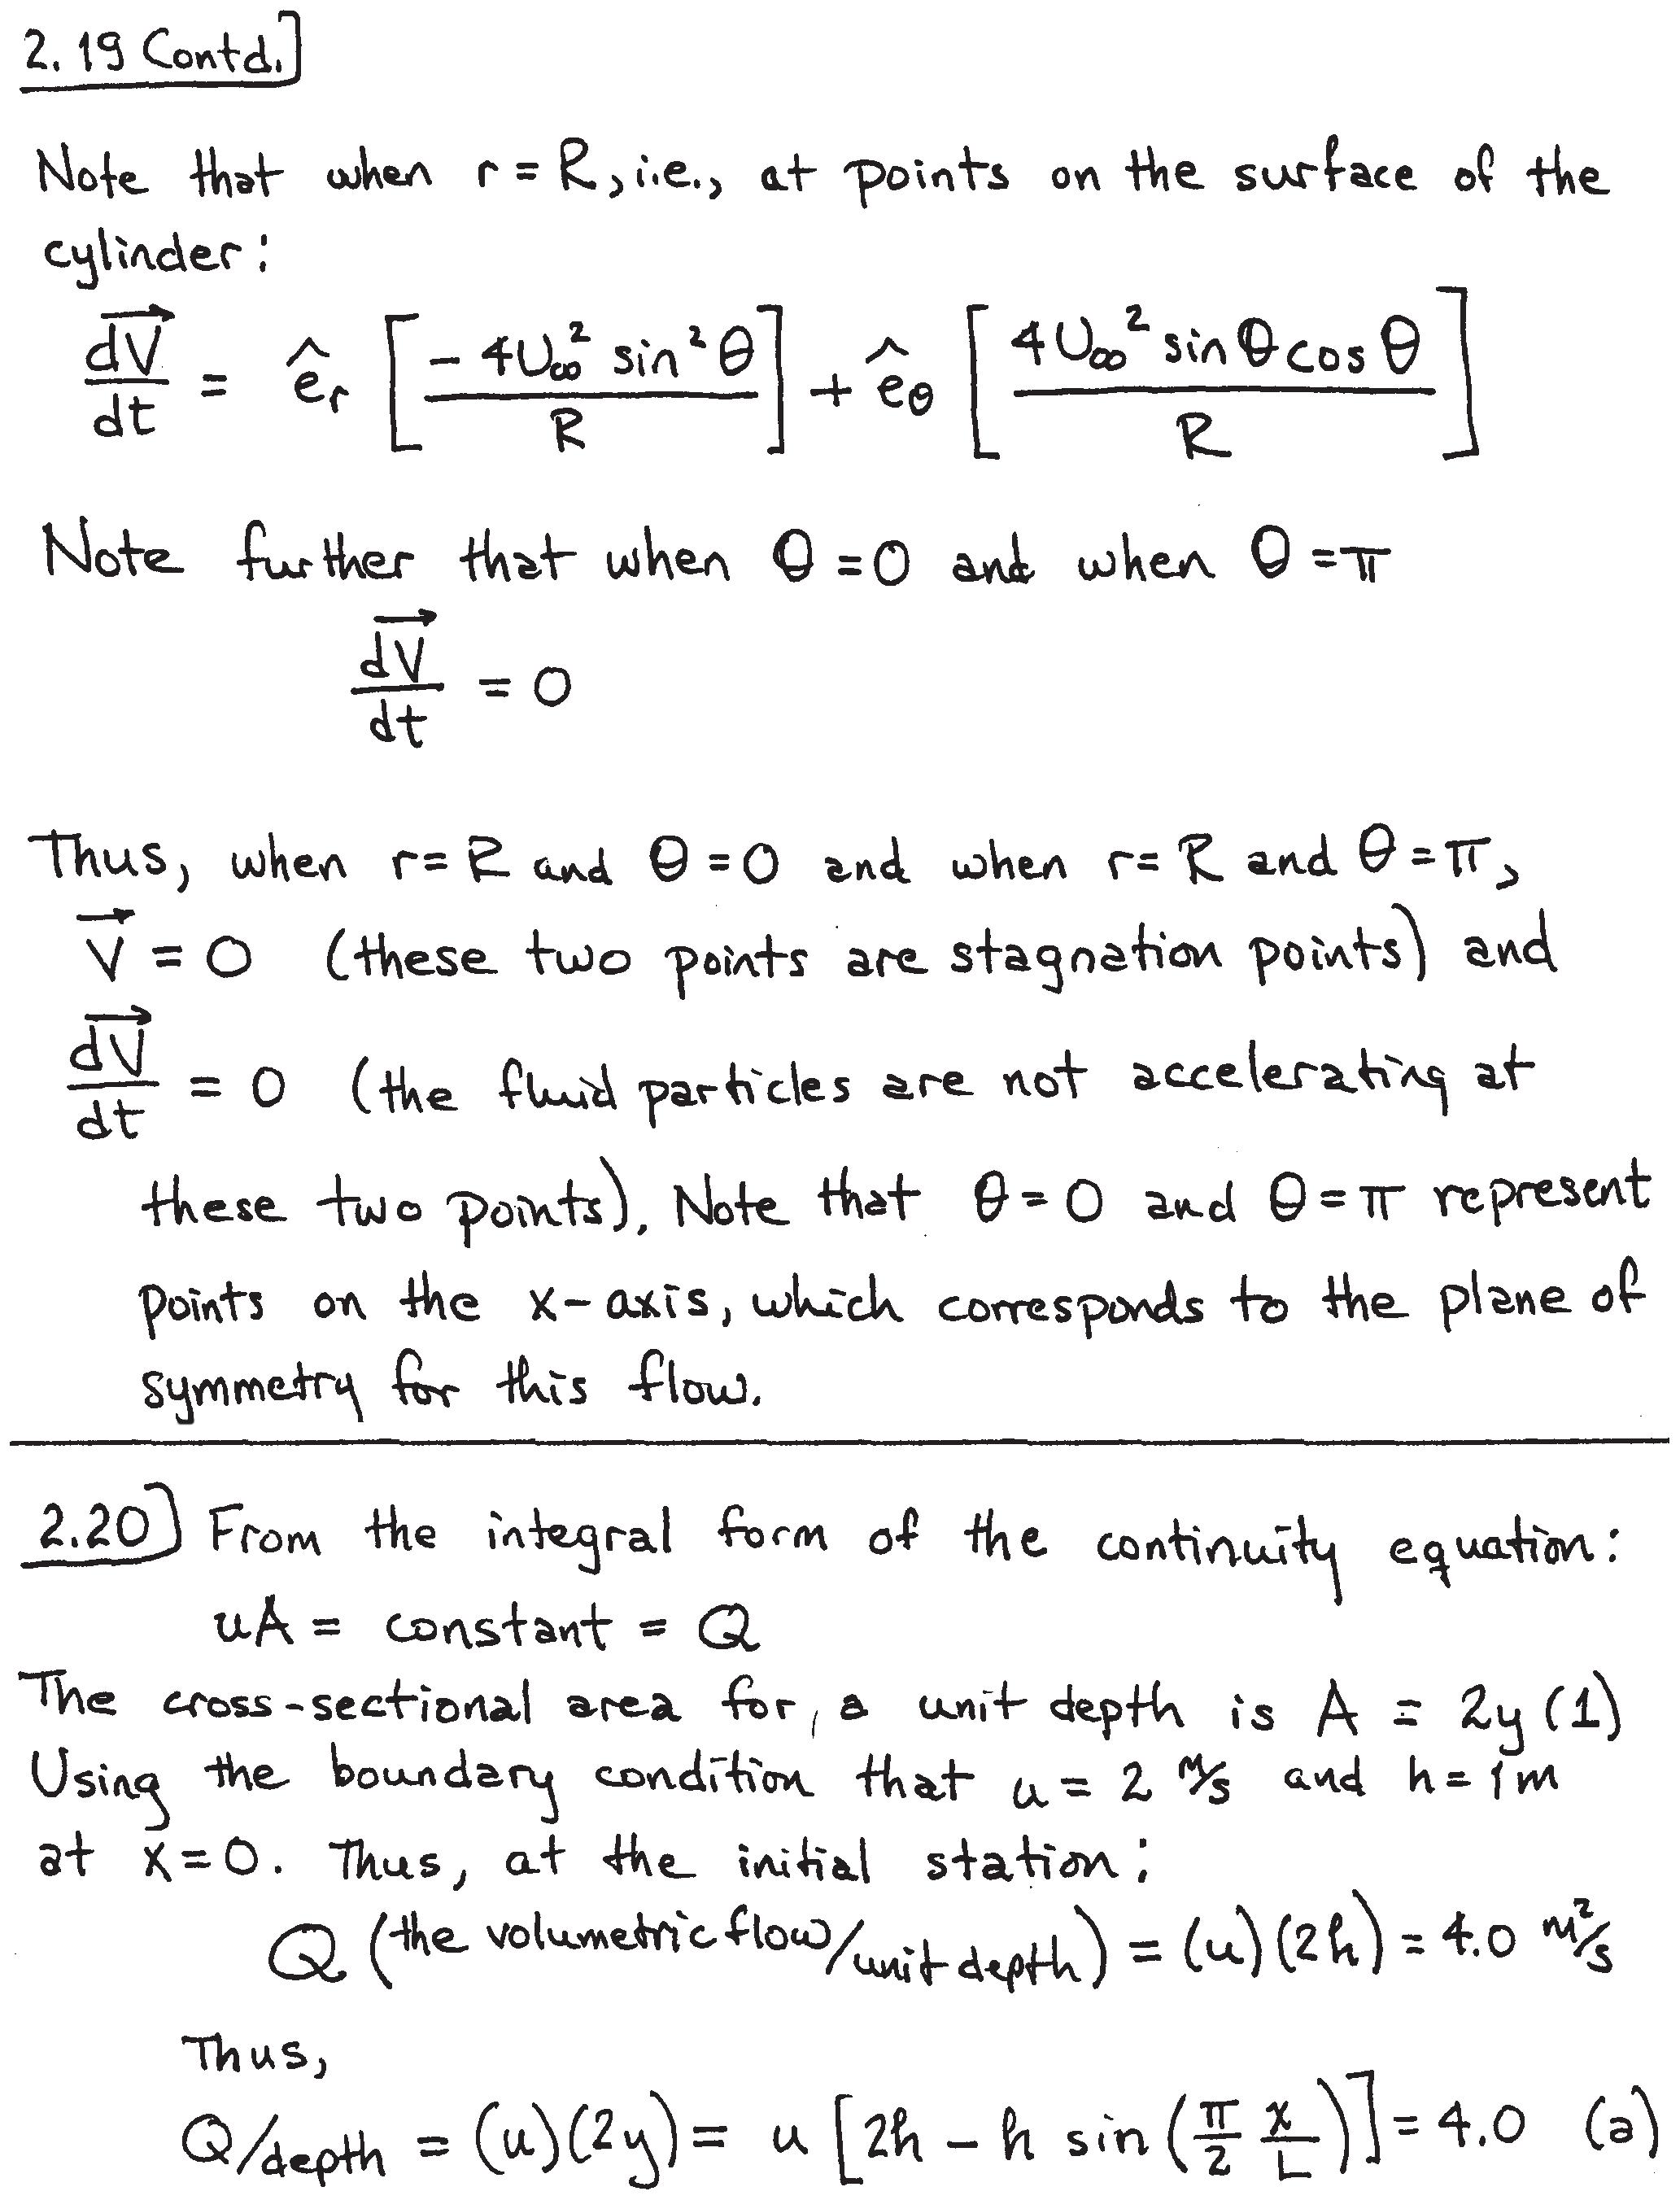 2.19 Contd.]
Note that when r = R, i.e., at points on the surface of the
cylinder:
dV⃗/dt = ê_r [-4U∞² sin²θ / R] + ê_θ [4U∞² sinθ cosθ / R]
Note further that when θ = 0 and when θ = π
dV⃗/dt = 0
Thus, when r = R and θ = 0 and when r = R and θ = π,
V⃗ = 0 (these two points are stagnation points) and
dV⃗/dt = 0 (the fluid particles are not accelerating at
these two points). Note that θ = 0 and θ = π represent
points on the x-axis, which corresponds to the plane of
symmetry for this flow.
2.20] From the integral form of the continuity equation:
uA = constant = Q
The cross-sectional area for a unit depth is A = 2y (1)
Using the boundary condition that u = 2 m/s and h = 1m
at x = 0. Thus, at the initial station:
Q (the volumetric flow/unit depth) = (u)(2h) = 4.0 m²/s
Thus,
Q/depth = (u)(2y) = u [2h - h sin (π/2 x/L)] = 4.0 (a)